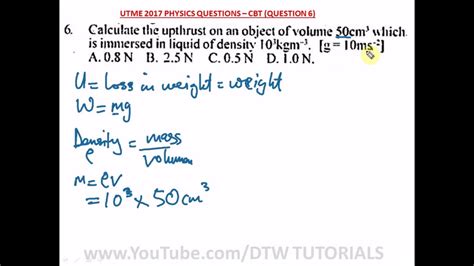 UTME 2017 PHYSICS QUESTIONS – CBT (QUESTION 6)
6. Calculate the upthrust on an object of volume 50cm³ which
is immersed in liquid of density 10³kgm⁻³. [g = 10ms⁻²]
A. 0.8 N B. 2.5 N C. 0.5 N D. 1.0 N.
U = Loss in weight = weight
W = mg
Density = mass
ρ volume
m = ρv
= 10³ × 50cm³
www.YouTube.com/DTW TUTORIALS